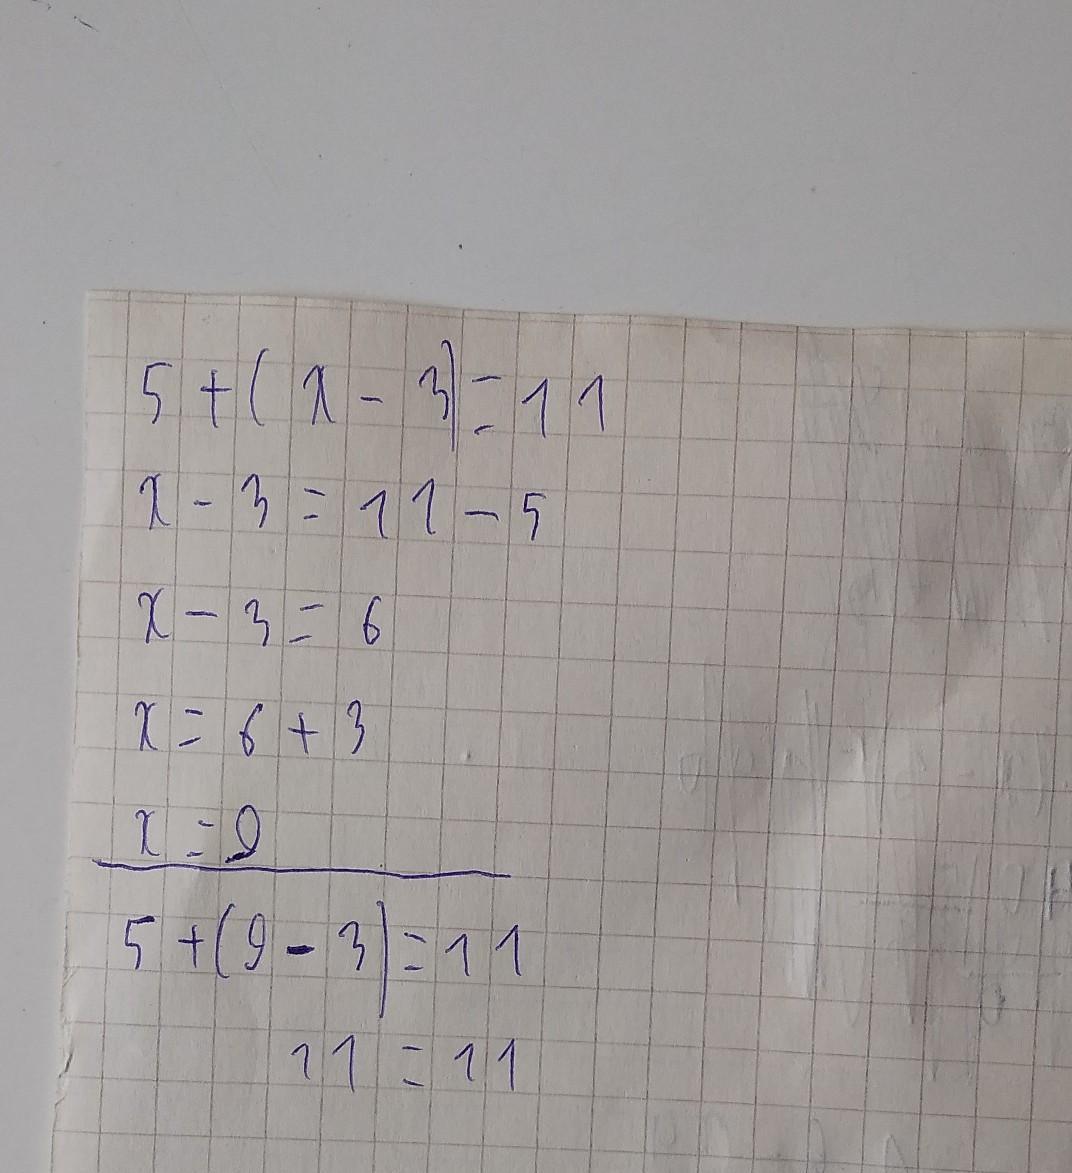 5 + ( x - 3 ) = 11
x - 3 = 11 - 5
x - 3 = 6
x = 6 + 3
x = 9
5 + ( 9 - 3 ) = 11
11 = 11